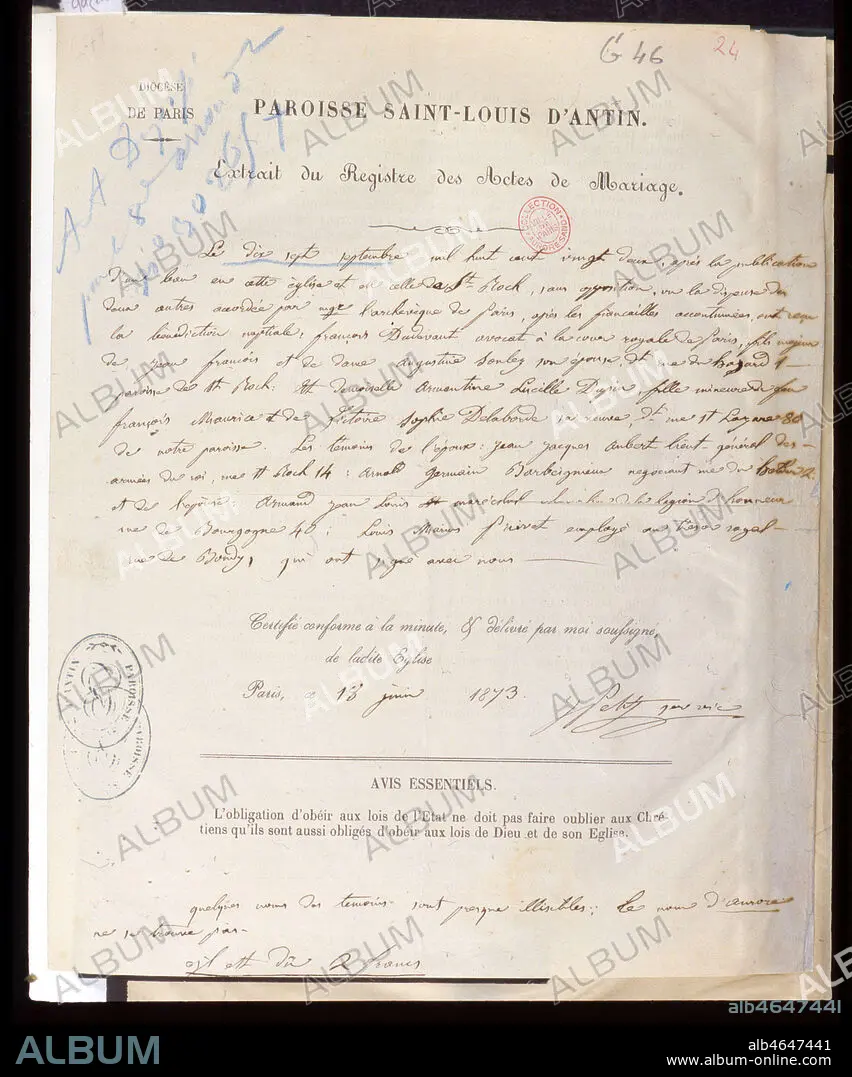 G 46
24
DIOCÈSE
DE PARIS
PAROISSE SAINT-LOUIS D'ANTIN.
Extrait du Registre des Actes de Mariage.
COLLECTION
VILLE DE PARIS
Le dix sept septembre mil huit cent vingt deux, après la publication
d'un ban en cette église et en celle de St Roch, sans opposition, vu la dispense des
deux autres accordée par mgr l'archevêque de Paris, après les fiancailles accoutumées, ont reçu
la bénédiction nuptiale: françois Dudevant avocat à la cour royale de Paris, fils majeur
de jean françois et de dame augustine son épouse, dt rue du hazard 1
paroisse de St Roch: Et demoiselle Armantine Lucille Dupin, fille mineure de feu
françois Maurice et de Victoire Sophie Delaborde sa veuve, dt rue St Lazare 80
de notre paroisse. Les temoins de l'époux: jean jacques aubert lieut-général des
armées du roi, rue St Roch 14: Arnold Germain Barbeignieu negociant rue du helder 2
et de l'épouse: Armand jean Louis de la legion d'honneur
rue de Bourgogne 40; Louis Marus employé au tresor royal
rue de Bondy, qui ont signé avec nous
Certifié conforme à la minute, & délivré par moi soussigné,
de ladite Eglise
Paris, ce 13 juin 1873.
PAROISSE
AVIS ESSENTIELS.
L'obligation d'obéir aux lois de l'Etat ne doit pas faire oublier aux Chré-
tiens qu'ils sont aussi obligés d'obéir aux lois de Dieu et de son Eglise.
quelques noms des temoins sont presque illisibles; le nom d'aurore
ne se trouve pas-
il est dû 2 francs
ALBUM
alb4647441
alb4647441
www.album-online.com